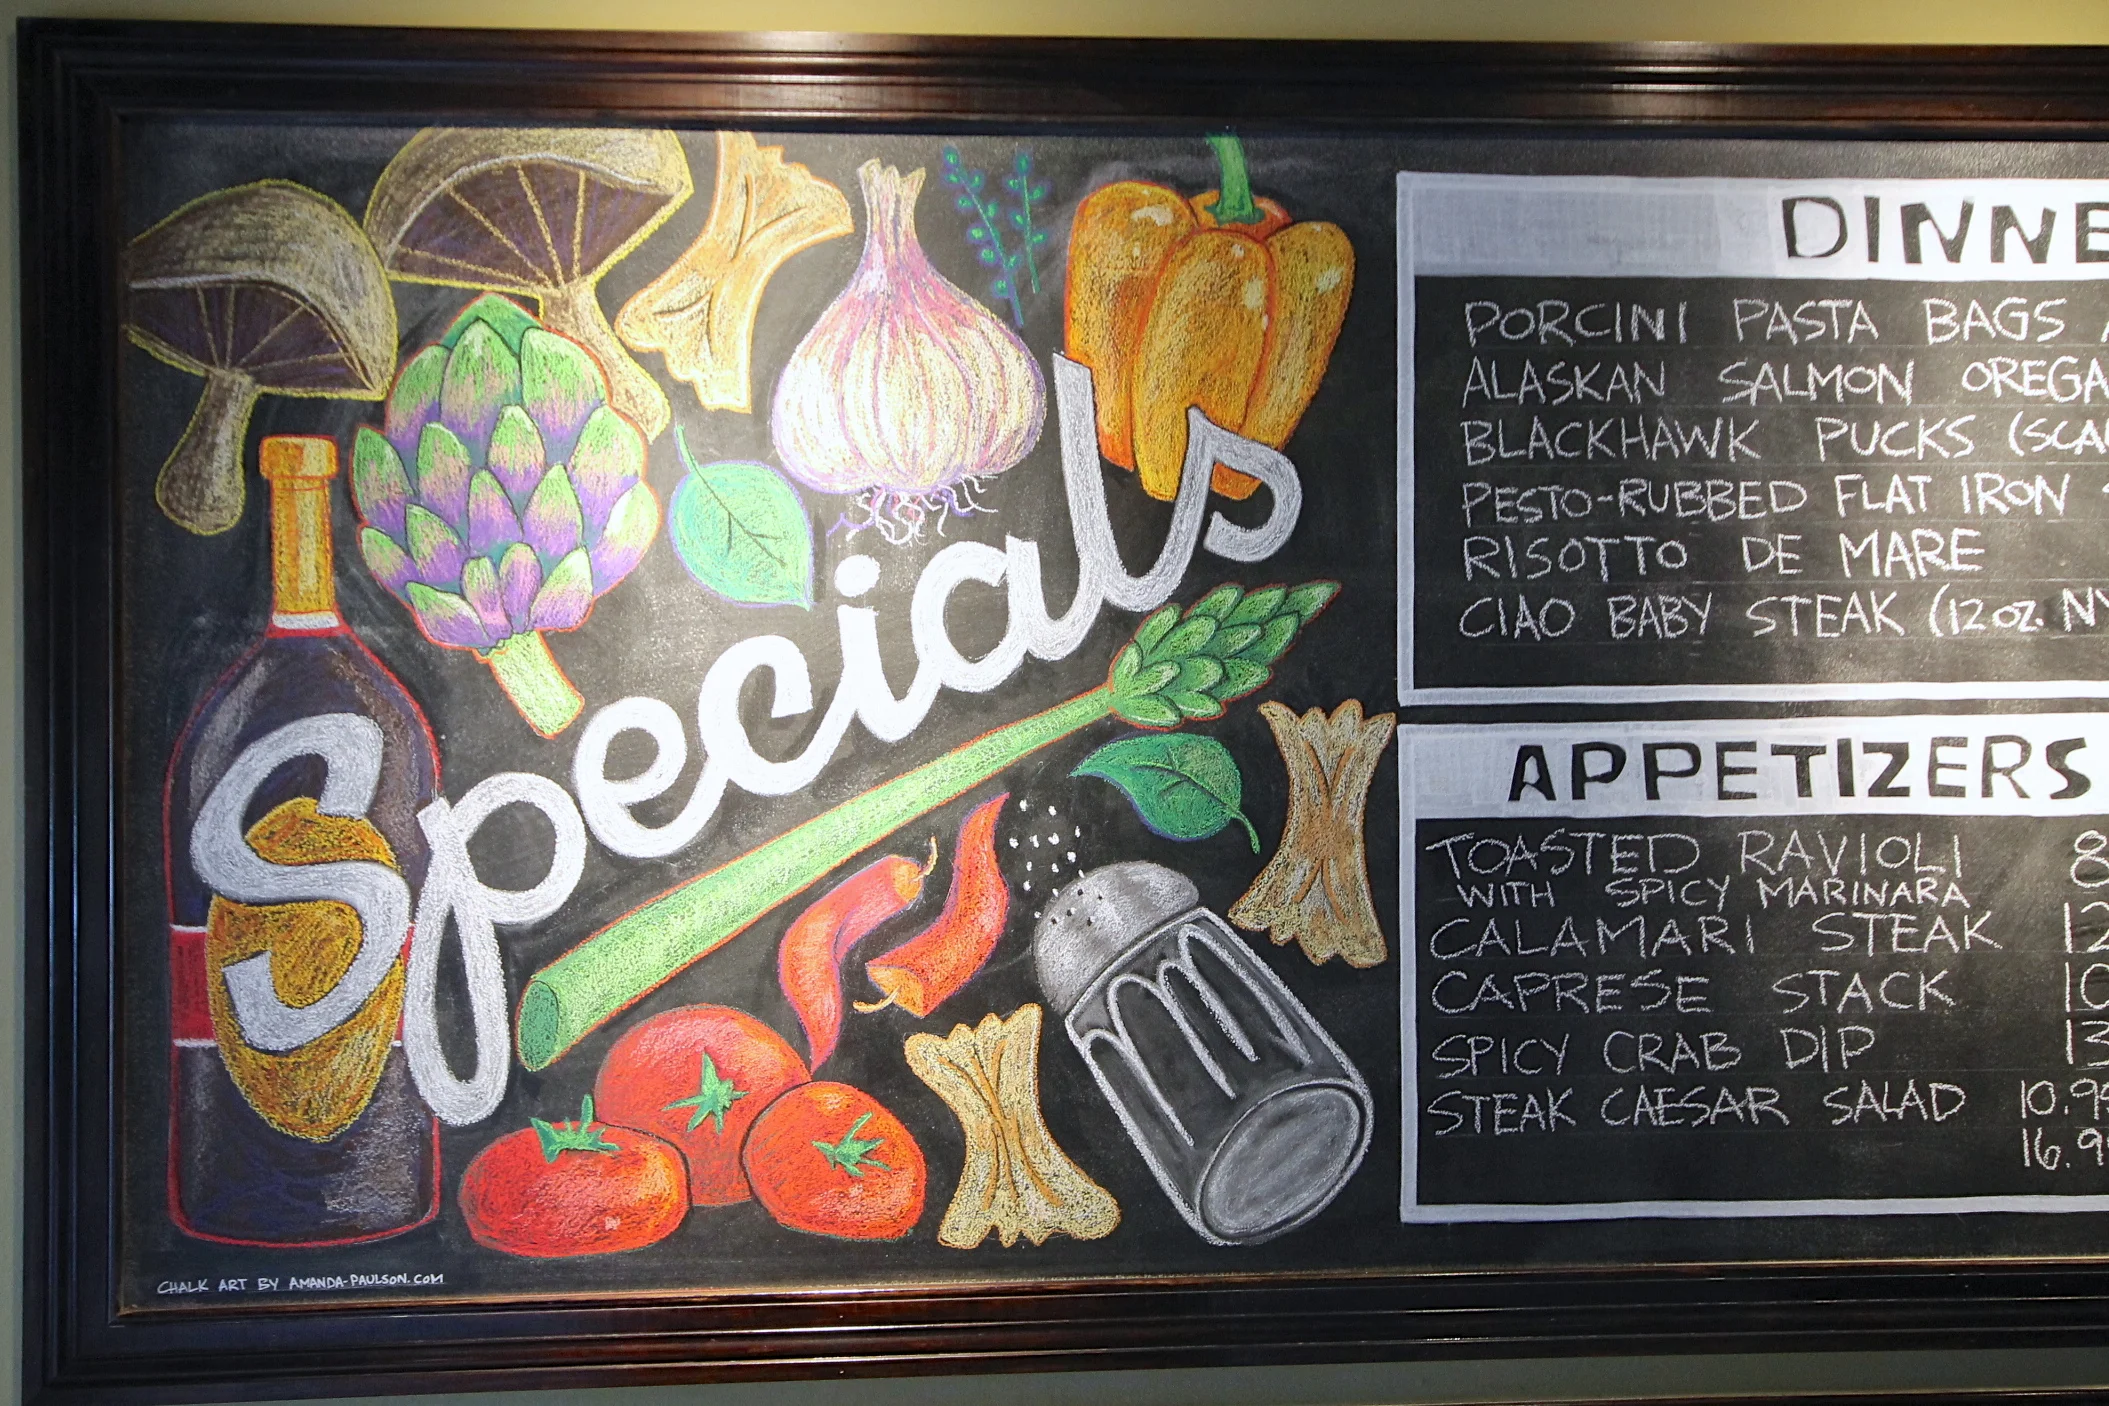 Specials
CHALK ART BY AMANDA-PAULSON.COM
PORCINI PASTA BAGS
ALASKAN SALMON
BLACKHAWK PUCKS
PESTO-RUBBED FLAT IRON
RISOTTO DE MARE
CIAO BABY STEAK (12 OZ. NY
APPETIZERS
TOASTED RAVIOLI 8
WITH SPICY MARINARA
CALAMARI STEAK 12
CAPRESE STACK 10
SPICY CRAB DIP 13
STEAK CAESAR SALAD 10.95
16.95